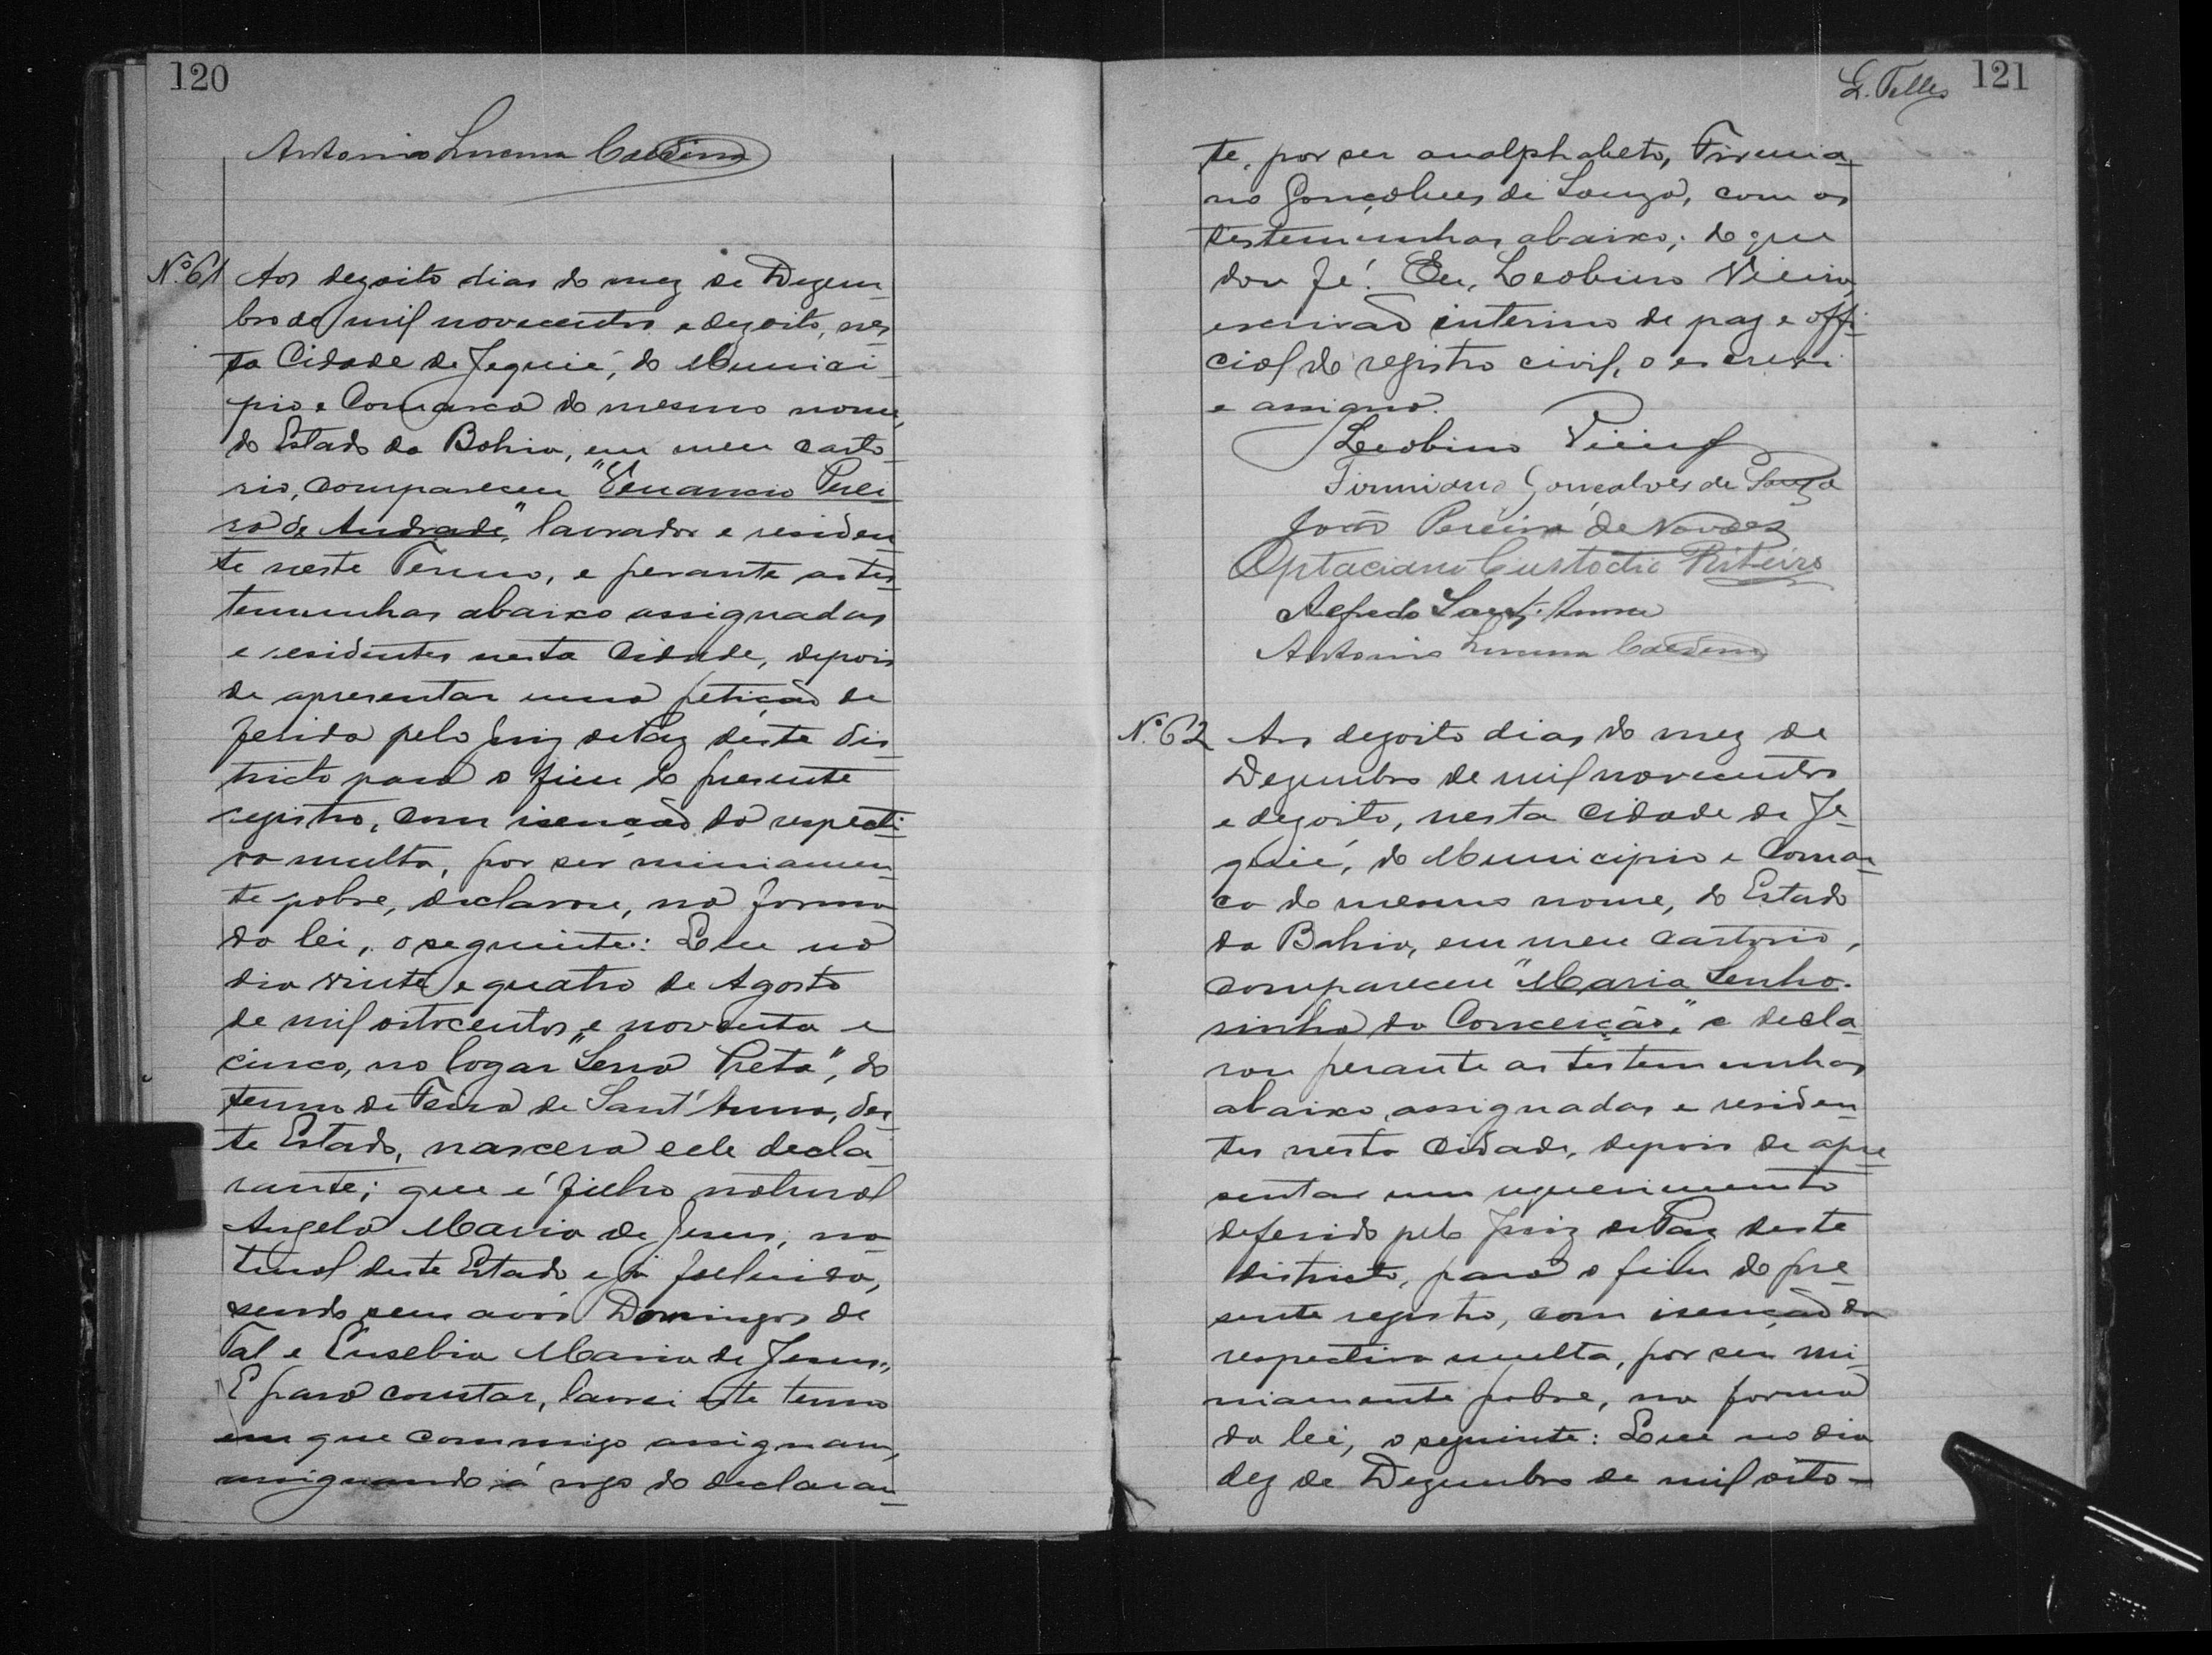 120
Antonio Lucena
Nº 61 Aos dezoito dias do mez de Dezem-
bro de mil novecentos e dezoito, nes-
ta Cidade de Jequié, do Munici-
pio e Comarca do mesmo nome,
do Estado da Bahia, em meu carto-
rio, compareceu "Venancio Perei-
ra de Andrade", lavrador e residen-
te neste Termo, e perante as tes-
temunhas abaixo assignadas
e residentes nesta Cidade, depois
de apresentar uma petição de
ferida pelo Juiz de Paz deste dis-
tricto para o fim do presente
registro, com isenção da respecti-
va multa, por ser miniamen-
te pobre, declarou, na forma
da lei, o seguinte: Que no
dia vinte e quatro de Agosto
de mil oitocentos e noventa e
cinco, no logar "Serra Preta", do
termo de Feira de Sant'Anna, des-
te Estado, nascera elle decla-
rante; que é filho natural
Angela Maria de Jesus, na-
tural deste Estado e já fallecida,
sendo seus avós Domingos de
Tal e Eusebia Maria de Jesus.
E para constar, lavrei este termo
em que commigo assignam,
assignando á rogo do declaran-
L. Telles 121
te, por ser analphabeto, Firmia-
no Gonçalves de Souza, com as
testemunhas abaixo; do que
dou fé. Eu, Leobino Vieira,
escrivão interino de paz e offi-
cial do registro civil, o escrevi
e assigno.
Leobino Vieira
Firmiano Gonçalves de Souza
João Pereira de Novaes
Optaciano Custodio Ribeiro
Alfredo Sant'Anna
Antonio Lucena
Nº 62 Aos dezoito dias do mez de
Dezembro de mil novecentos
e dezoito, nesta Cidade de Je-
quié, do Municipio e Comar-
ca do mesmo nome, do Estado
da Bahia, em meu cartorio,
compareceu "Maria Senho-
rinha da Conceição", e decla-
rou perante as testemunhas
abaixo assignadas e residen-
tes nesta Cidade, depois de apre-
sentar um requerimento
deferido pelo Juiz de Paz deste
districto, para o fim do pre-
sente registro, com isenção da
respectiva multa, por ser mi-
niamente pobre, na forma
da lei, o seguinte: Que no dia
dez de Dezembro de mil oito-